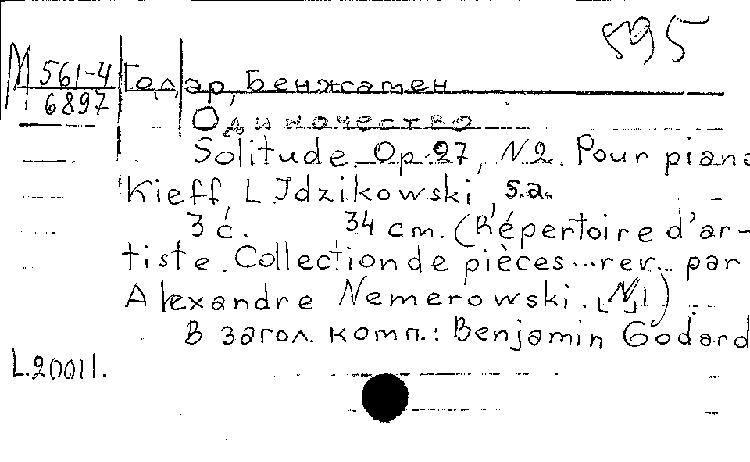 895
М 561-4 Годар, Бенжамен
6897
Одиночество
Solitude. Op. 27, N2. Pour piano
Kieff, L Idzikowski, s.a.
3 с. 34 cm. (Répertoire d'ar-
tiste. Collection de pièces... rev... par
Alexandre Nemerowski. [N])
В загол. комп.: Benjamin Godard
L.20011.